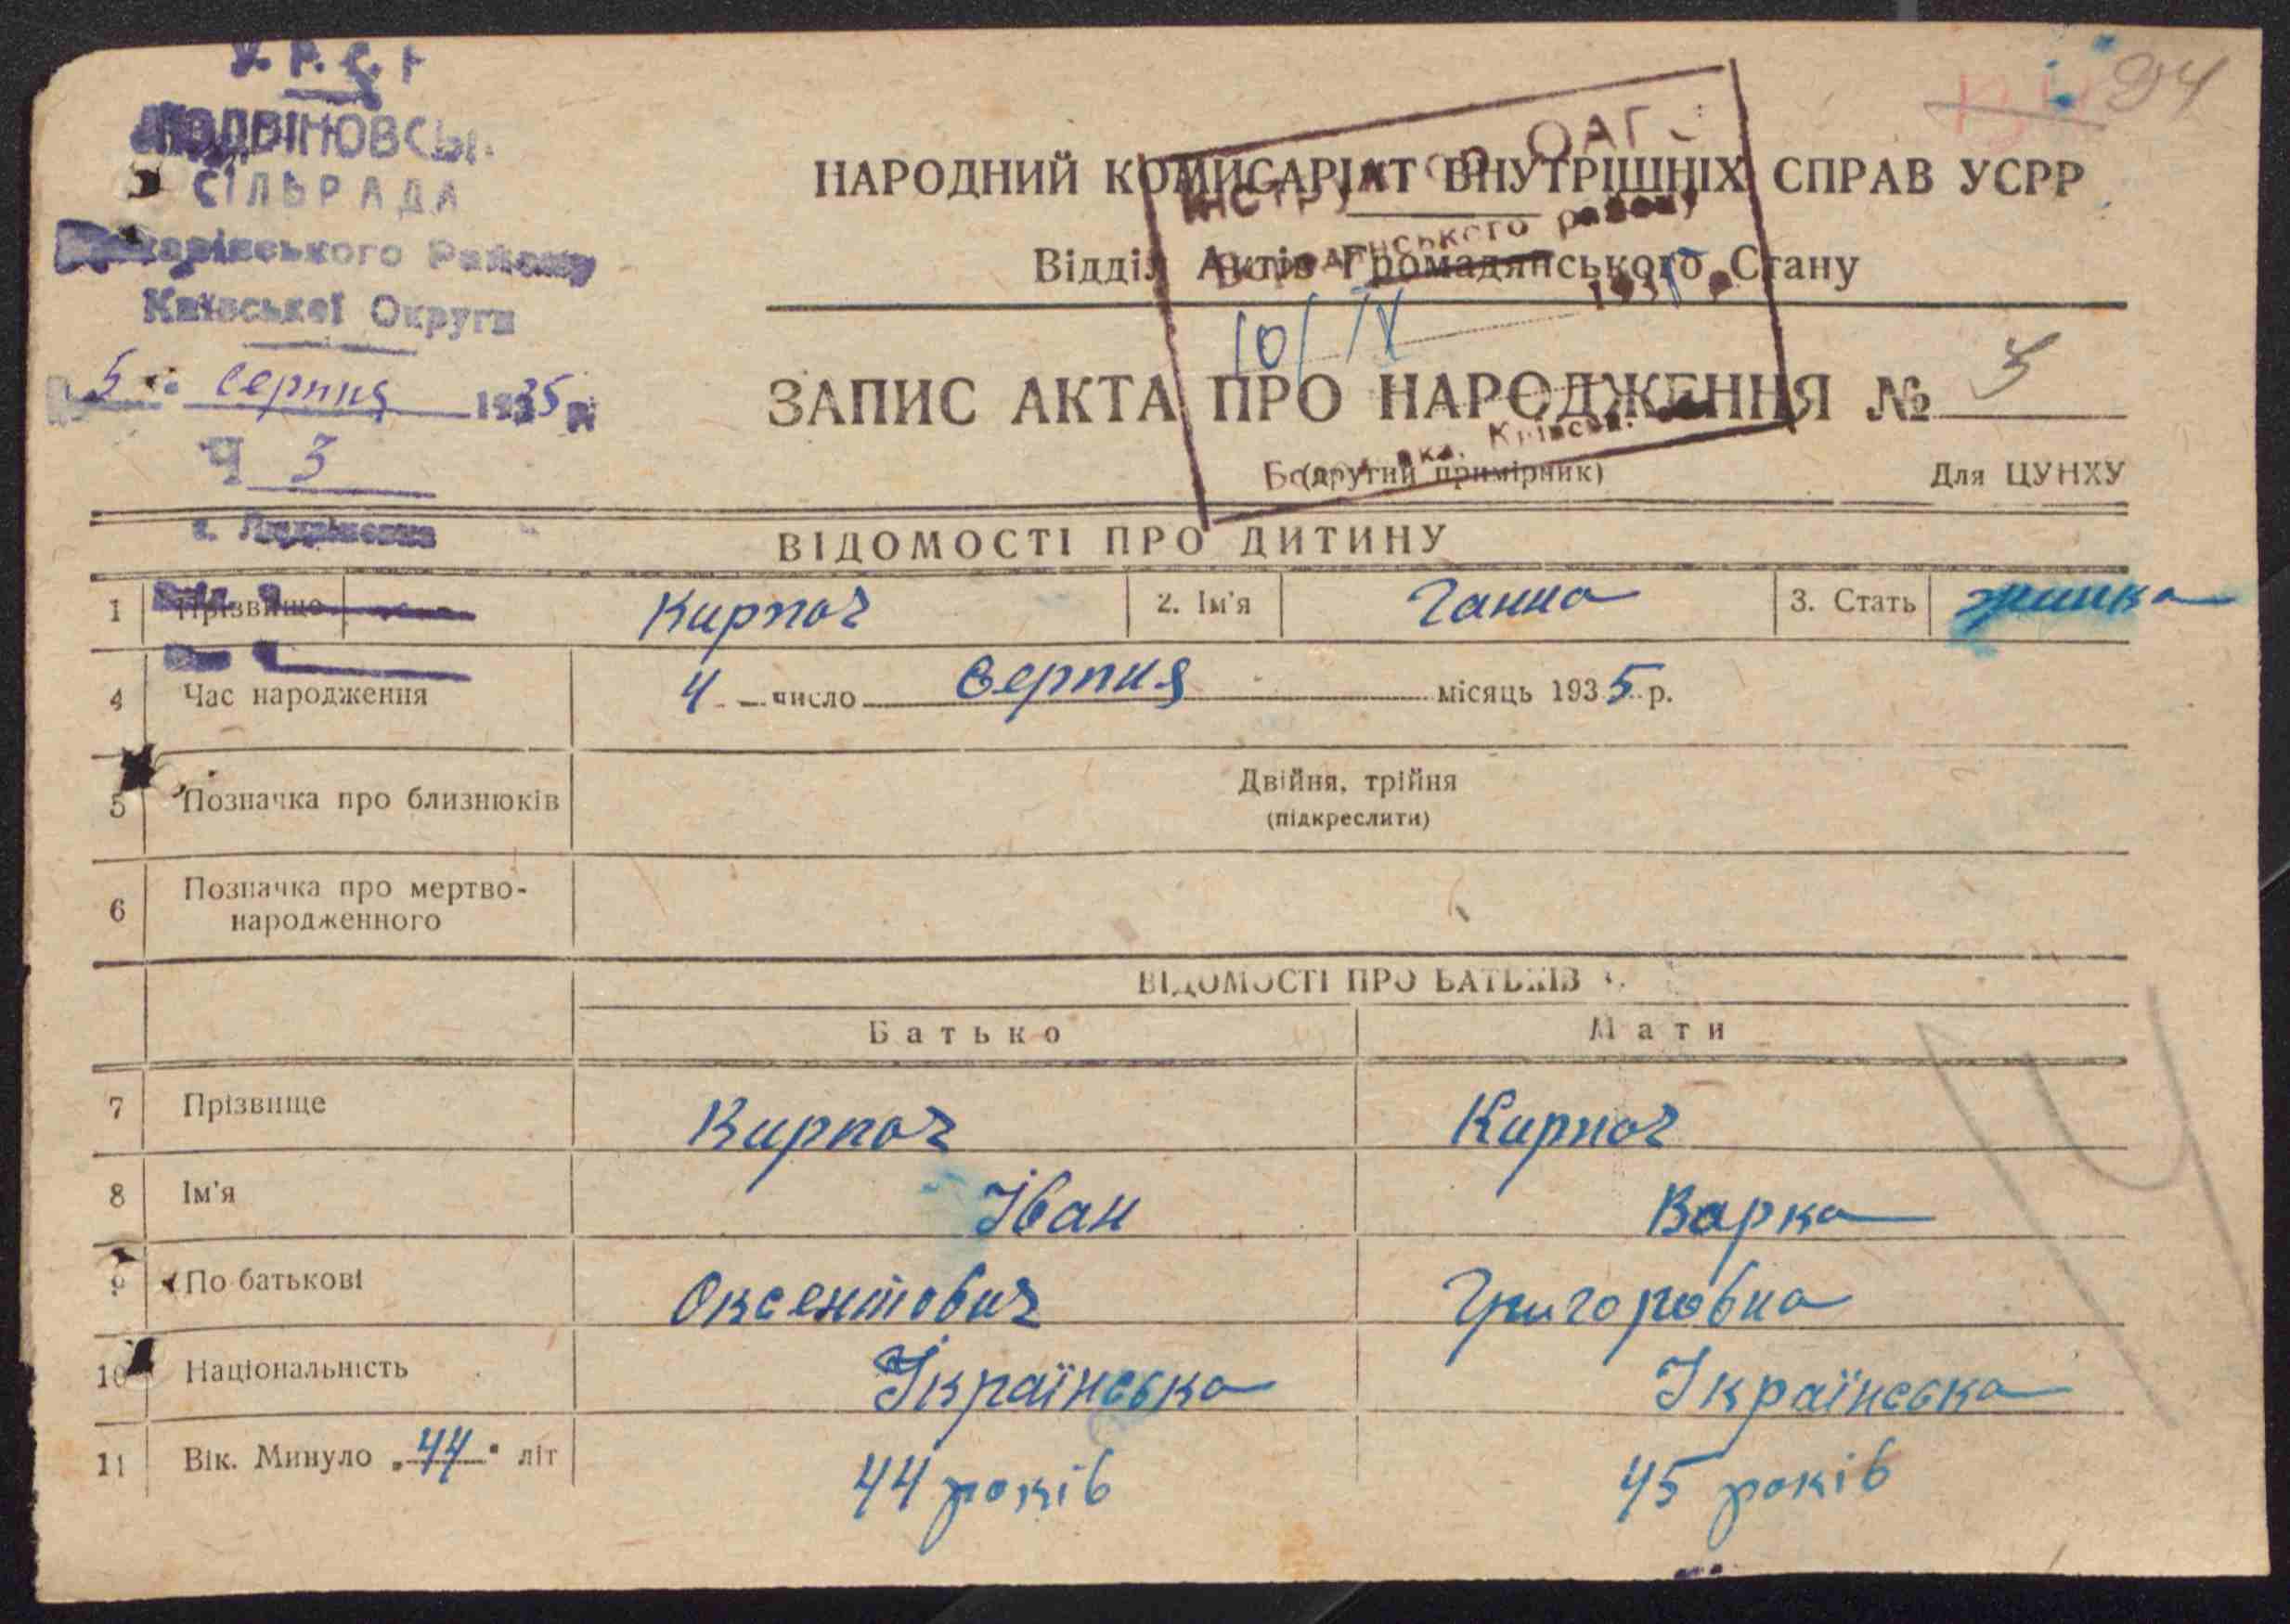 У. Р. С. Р
СІЛЬРАДА
Району
Київської Округи
5 серпня 1935 р
Ч 3
94
Інструктор ОАГС
району
193
10/IX
НАРОДНИЙ КОМИСАРІАТ ВНУТРІШНІХ СПРАВ УСРР
Відділ Актів Громадянського Стану
ЗАПИС АКТА ПРО НАРОДЖЕННЯ № 3
(другий примірник) Для ЦУНХУ
ВІДОМОСТІ ПРО ДИТИНУ
1 Прізвище Кирпач 2. Ім'я Ганна 3. Стать жінка
4 Час народження 4 число Серпня місяць 1935 р.
5 Позначка про близнюків Двійня, трійня
(підкреслити)
6 Позначка про мертво-
народженного
ВІДОМОСТІ ПРО БАТЬКІВ
Батько Мати
7 Прізвище Кирпач Кирпач
8 Ім'я Іван Варка
9 По батькові Оксентович Григоровна
10 Національність Українська Українська
11 Вік. Минуло „44" літ 44 років 45 років